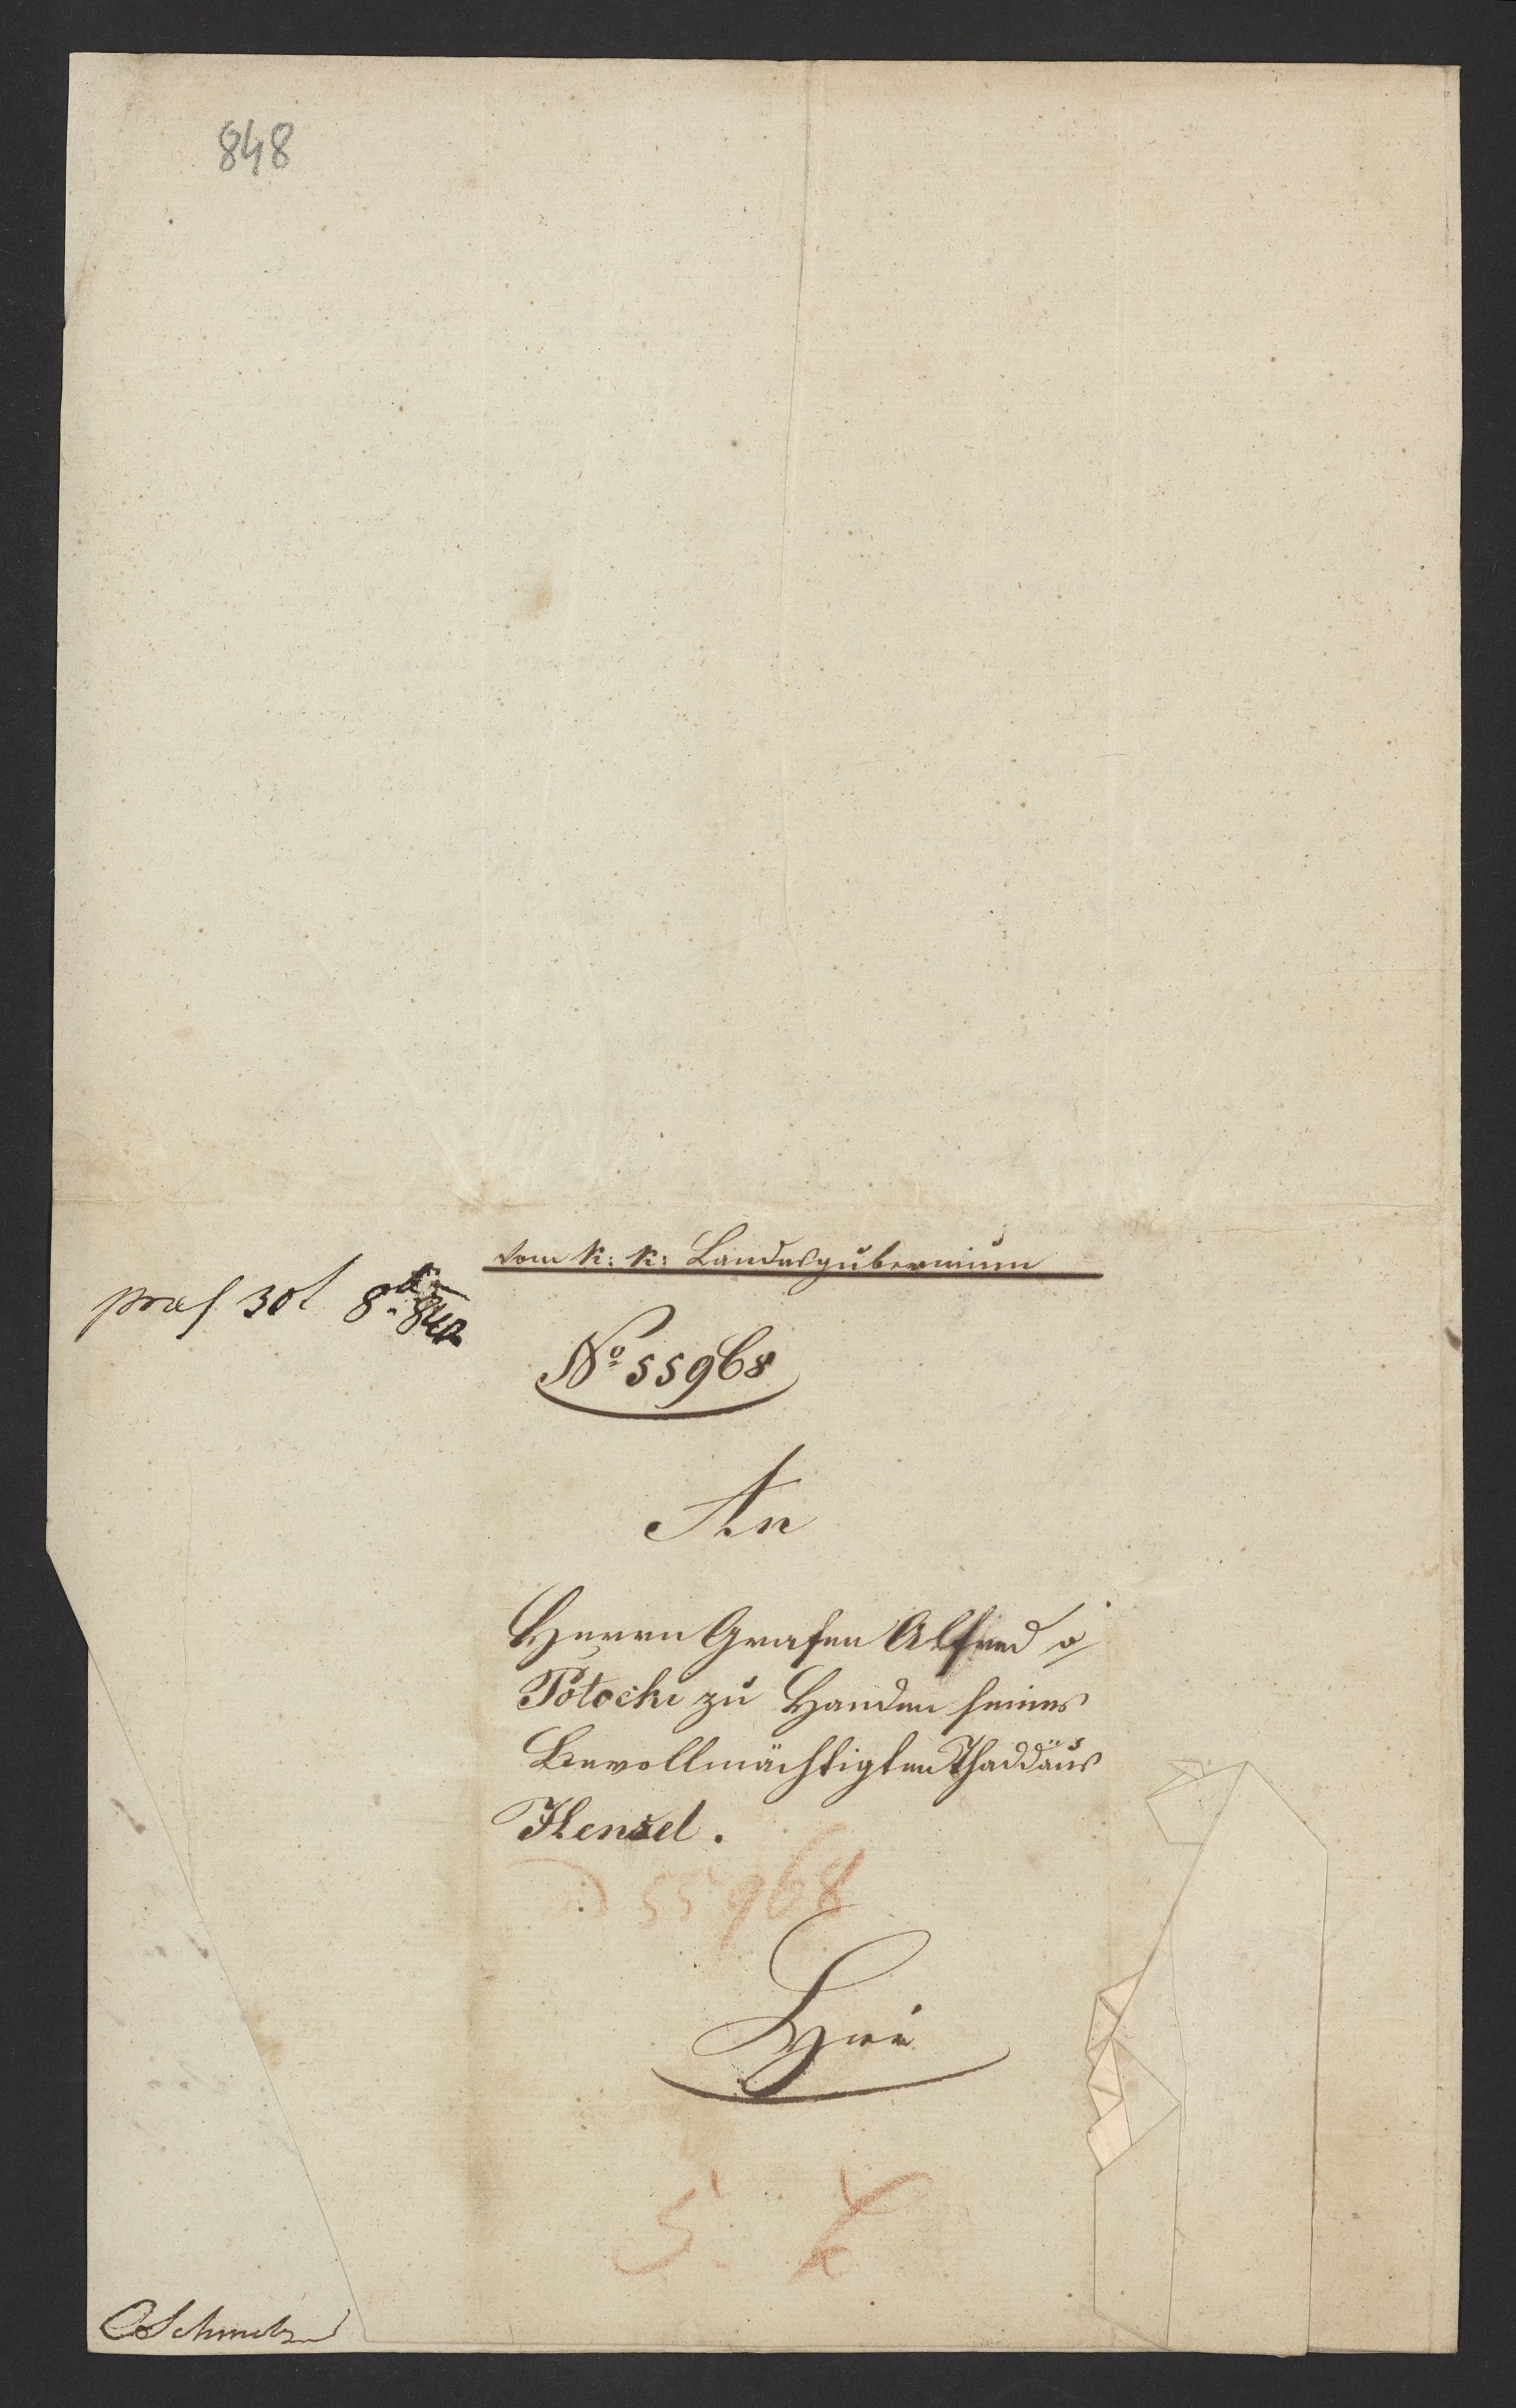 848
Vom k: k: Landesgubernium
praes 30t 8br 842
No 55968
An
Herrn Grafen Alfred v
Potocki zu Handen seines
Bevollmächtigten Thaddäus
Hensel.
55968
Hier
5.